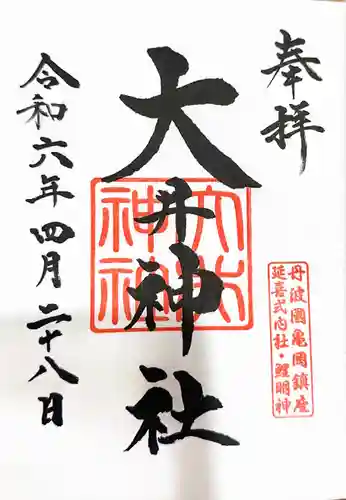 奉拝
丹波國亀岡鎮座
延喜式内社・鯉明神
大井神社
令和六年四月二十八日